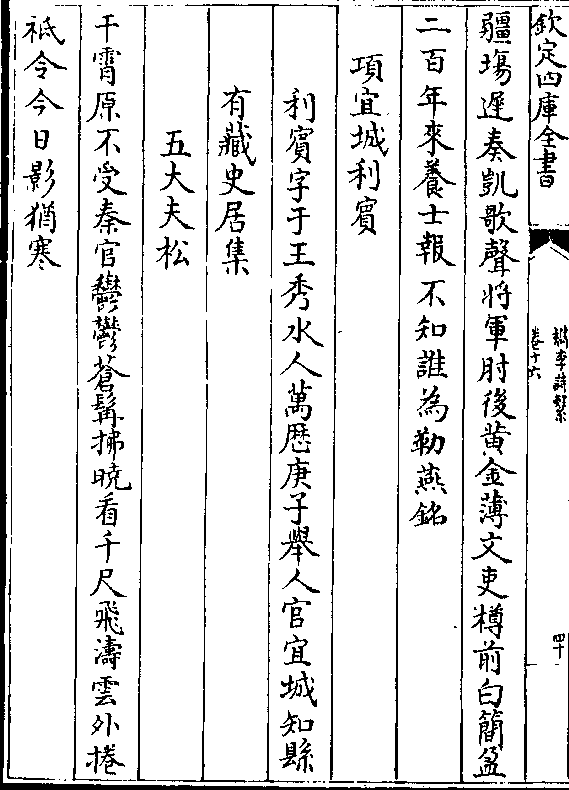 欽定四庫全書
檇李詩繫
卷十六
四十
疆場遲奏凱歌聲將軍肘後黄金薄文吏樽前白簡盈
二百年來養士報不知誰為勒燕銘
項宜城利賓
利賓字于王秀水人萬厯庚子舉人官宜城知縣
有藏史居集
五大夫松
干霄原不受秦官鬱鬱蒼髯拂曉看千尺飛濤雲外捲
祇令今日影猶寒